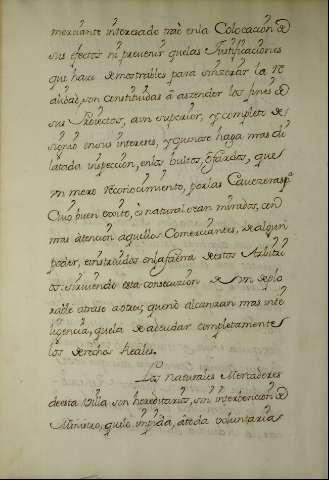 merciante interesado trae en la Colocacion de
sus efectos ni prevenir que las Justificaciones
que hace demostrables para sincerar la re
alidad, son constituidas á ascender los fines de
sus Proyectos, aun superior, y completo de
signio en sus intereses, y que no se haga mas di
latada inspeccion, en los bultos, ó fardos, que
un mero reconocimiento, por las Cavezeras, pr.
Cuio buen exsito, es natural sean mirados, con
mas atencion aquellos Comerciantes, de algun
poder, é instruidos en la faena de estos Arbitri
os: sirviendo esta consecucion de un deplo
rable atraso á otros, que no alcanzan mas inte
ligencia, que la de adeudar completamente
los derechos Reales.
Los naturales Mercaderes
de esta Villa son hereditarios, sin intervencion de
Ministro, que lo impida, á toda voluntaria